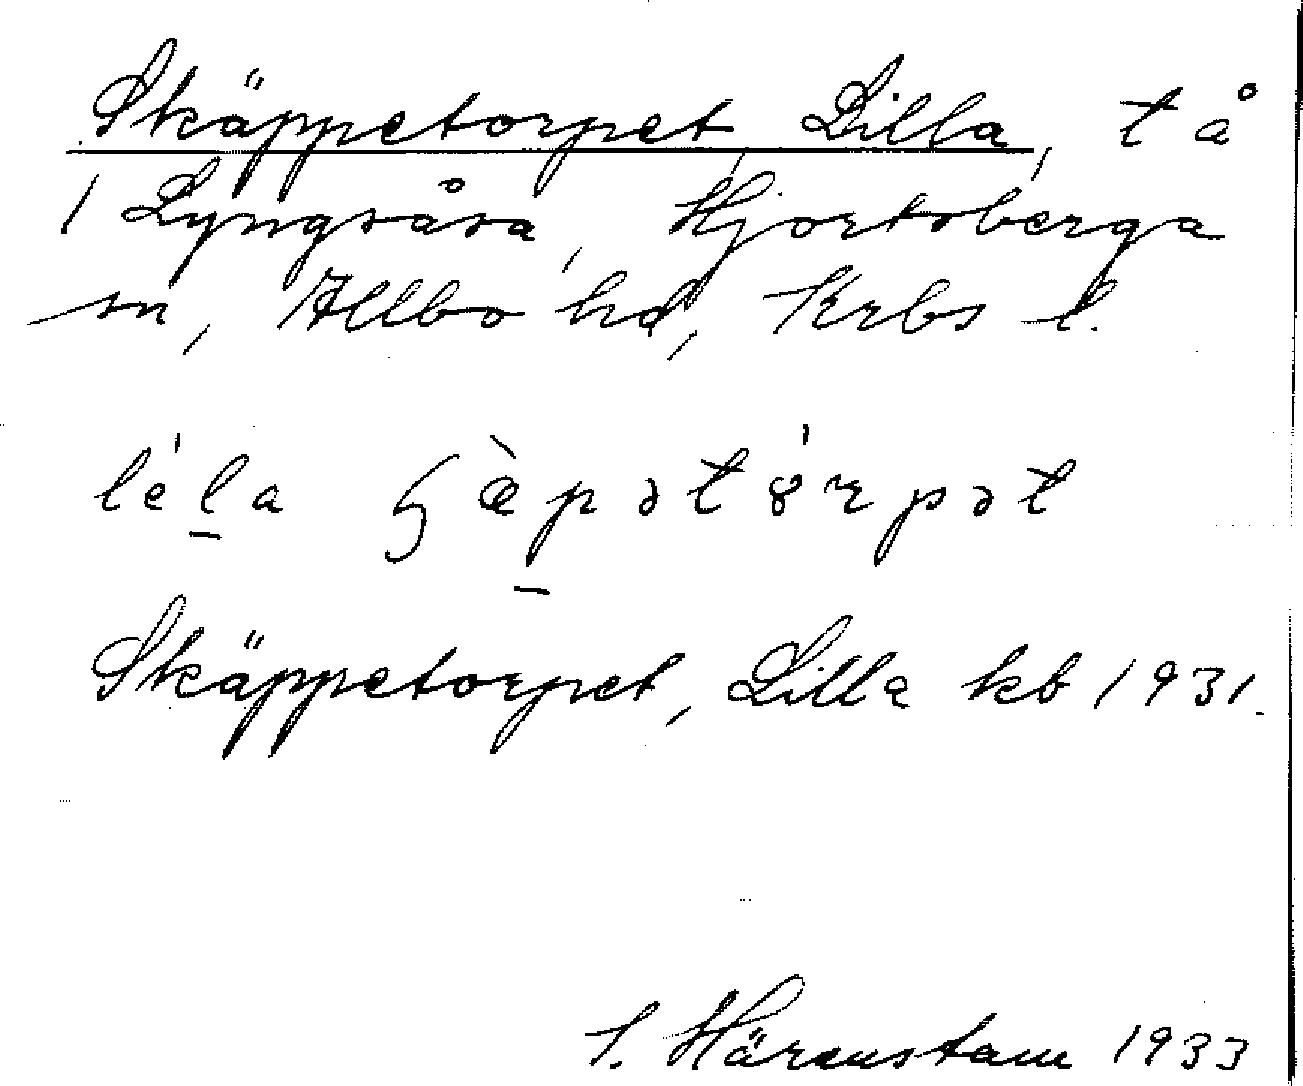 Skäppetorpet, Lilla, t å
1 Lyngsåsa, Hjortsberga
sn, Allbo hd, Krbs l.
léla ɧæ̀pətórpət
Skäppetorpet, Lilla kb 1931.
S. Härenstam 1933